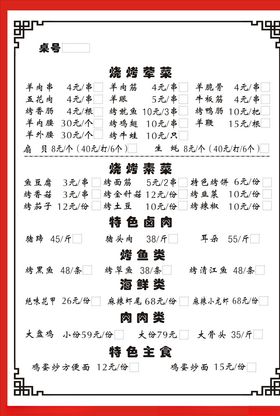 桌号
烧烤荤菜
羊肉串 4元/串 羊肉筋 4元/串 羊脆骨 4元/串
五花肉 4元/串 羊眼 5元/串 牛板筋 4元/串
烤香肠 4元/根 烤鱿鱼 10元/3串 烤鸭肠 10元/把
羊内腰 30元/个 烤鸡翅 10元/串 羊鞭 15元/根
羊外腰 30元/个 烤牛蛙 10元/只
扇贝 8元/个(40元/打/6个) 生蚝 8元/个(40元/打/6个)
烧烤素菜
鱼豆腐 3元/串 烤面筋 5元/2串 特色烤饼 6元/份
烤香菇 3元/串 烤金针菇 12元/份 烤韭菜 10元/份
烤茄子 12元/份 烤土豆 10元/份 烤辣椒 10元/份
特色卤肉
猪蹄 45/斤 猪头肉 38/斤 耳朵 55/斤
烤鱼类
烤黑鱼 48/条 烤草鱼 38/条 烤清江鱼 48/条
海鲜类
绝味花甲 26元/份 麻辣虾尾 68元/份 麻辣小龙虾 68元/份
肉肉类
大盘鸡 小份59元/份 大份79元 大骨头 35/斤
特色主食
鸡蛋炒方便面 12元/份 鸡蛋炒面 15元/份